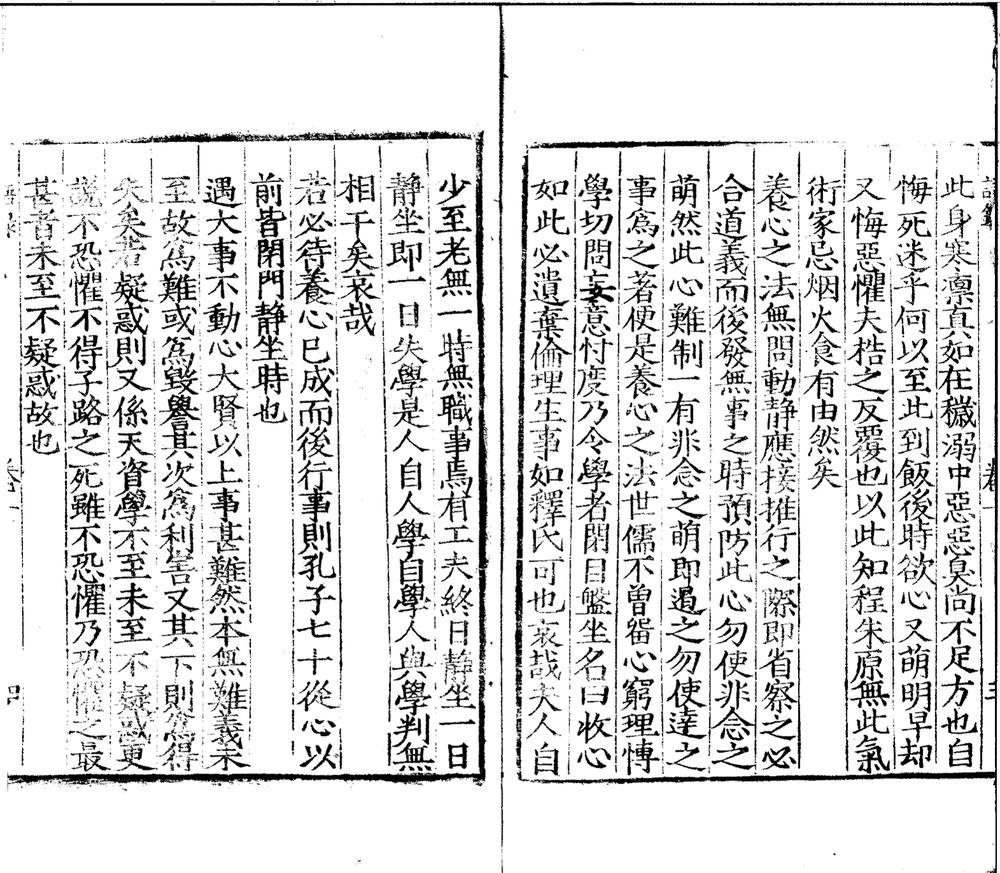 此身寒凛真如在穢溺中惡惡臭尚不足方也自
悔死迷乎何以至此到飯後時欲心又萌明早却
又悔惡懼夫梏之反覆也以此知程朱原無此氣
術家忌烟火食有由然矣
養心之法無問動靜應接推行之際即省察之必
合道義而後發無事之時預防此心勿使非念之
萌然此心難制一有非念之萌即遏之勿使達之
事爲之著便是養心之法世儒不曾畱心窮理慱
學切問妄意忖度乃令學者閉目盤坐名曰收心
如此必遺棄倫理生事如釋氏可也哀哉夫人自
少至老無一時無職事焉有工夫終日静坐一日
静坐即一日失學是人自人學自學人與學判無
相干矣哀哉
若必待養心已成而後行事則孔子七十從心以
前皆閉門静坐時也
遇大事不動心大賢以上事甚難然本無難義未
至故爲難或爲毀譽其次爲利害又其下則爲得
失矣若疑惑則又係天資學不至未至不疑惑更
說不恐懼不得子路之死雖不恐懼乃恐懼之最
甚者未至不疑惑故也
語錄 卷一 四